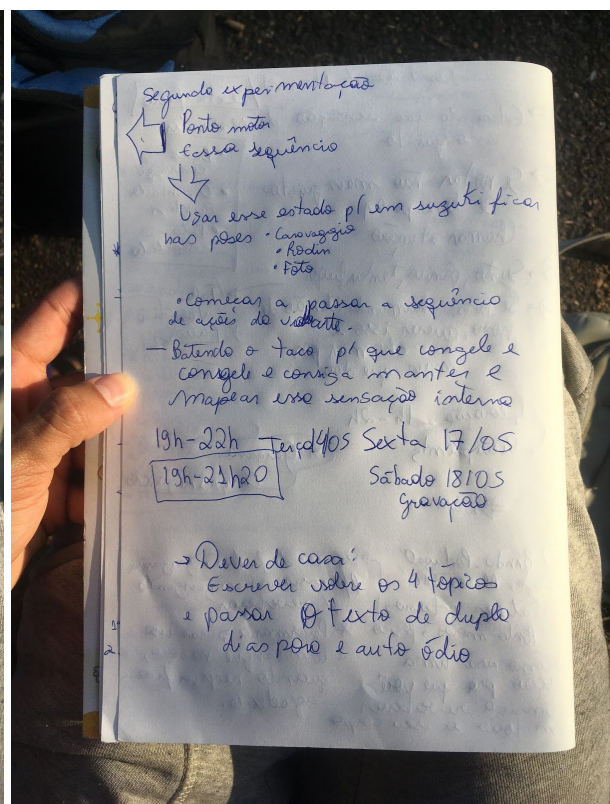 Segunda experimentação
Ponto motor
Essa sequência
Usar esse estado p/ em suzuki ficar
nas poses • Caravaggio
• Rodin
• Foto
• Começar a passar a sequência
de ações do
— Batendo o taco p/ que congele e
congele e consiga manter e
mapear essa sensação interna
19h-22h Terça 14/05 Sexta 17/05
19h-21h20 Sábado 18/05
gravação
→ Dever de casa:
Escrever sobre os 4 tópicos
e passar o texto de dupla
diaspora e auto ódio